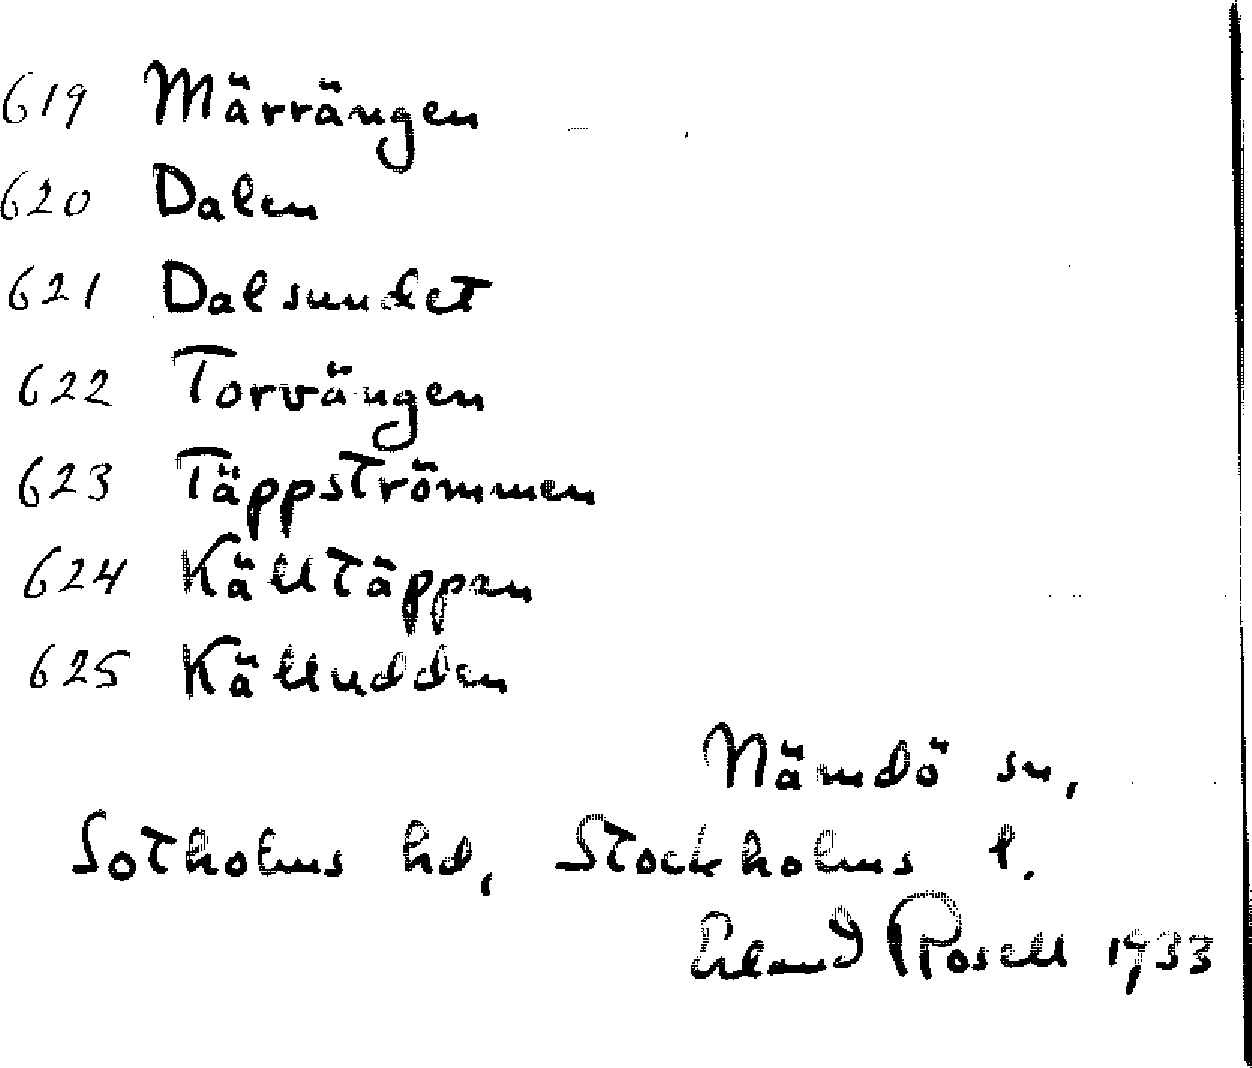 619 Märrängen
620 Dalen
621 Dalsundet
622 Torvängen
623 Täppströmmen
624 Källtäppan
625 Källudden
Nämdö sn,
Sotholms hd, Stockholms l.
Erland Rosell 1933